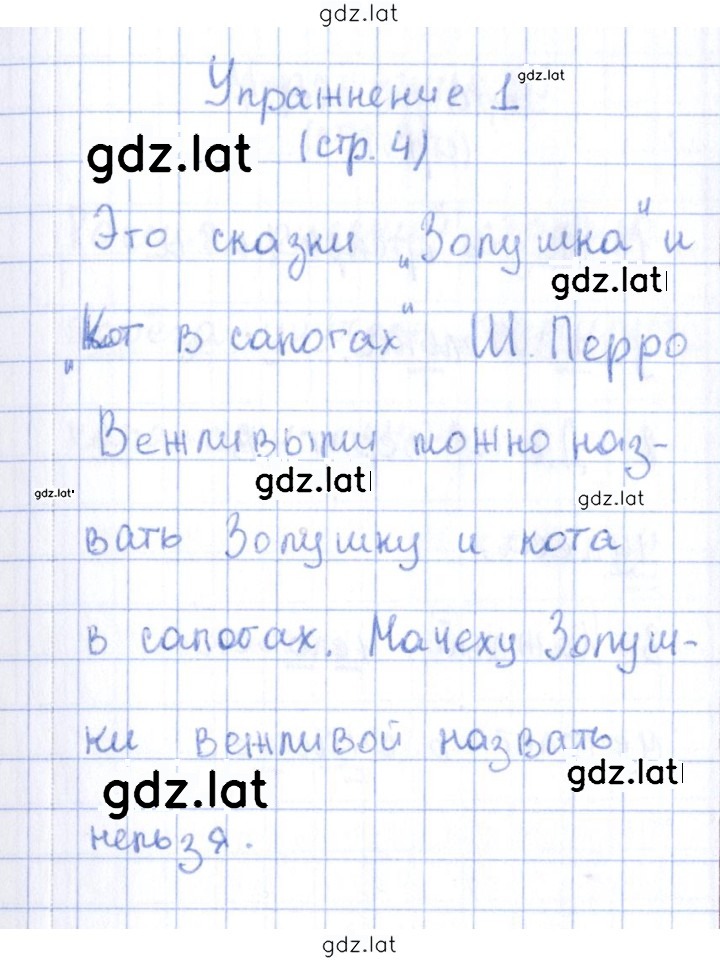 gdz.lat
Упражнение 1 gdz.lat
gdz.lat (стр. 4)
Это сказки „Золушка“ и
gdz.lat
„Кот в сапогах“ Ш. Перро
Вежливыми можно наз-
gdz.lat
gdz.lat gdz.lat
вать Золушку и кота
в сапогах. Мачеху Золуш-
ки вежливой назвать
gdz.lat gdz.lat
нельзя.
gdz.lat